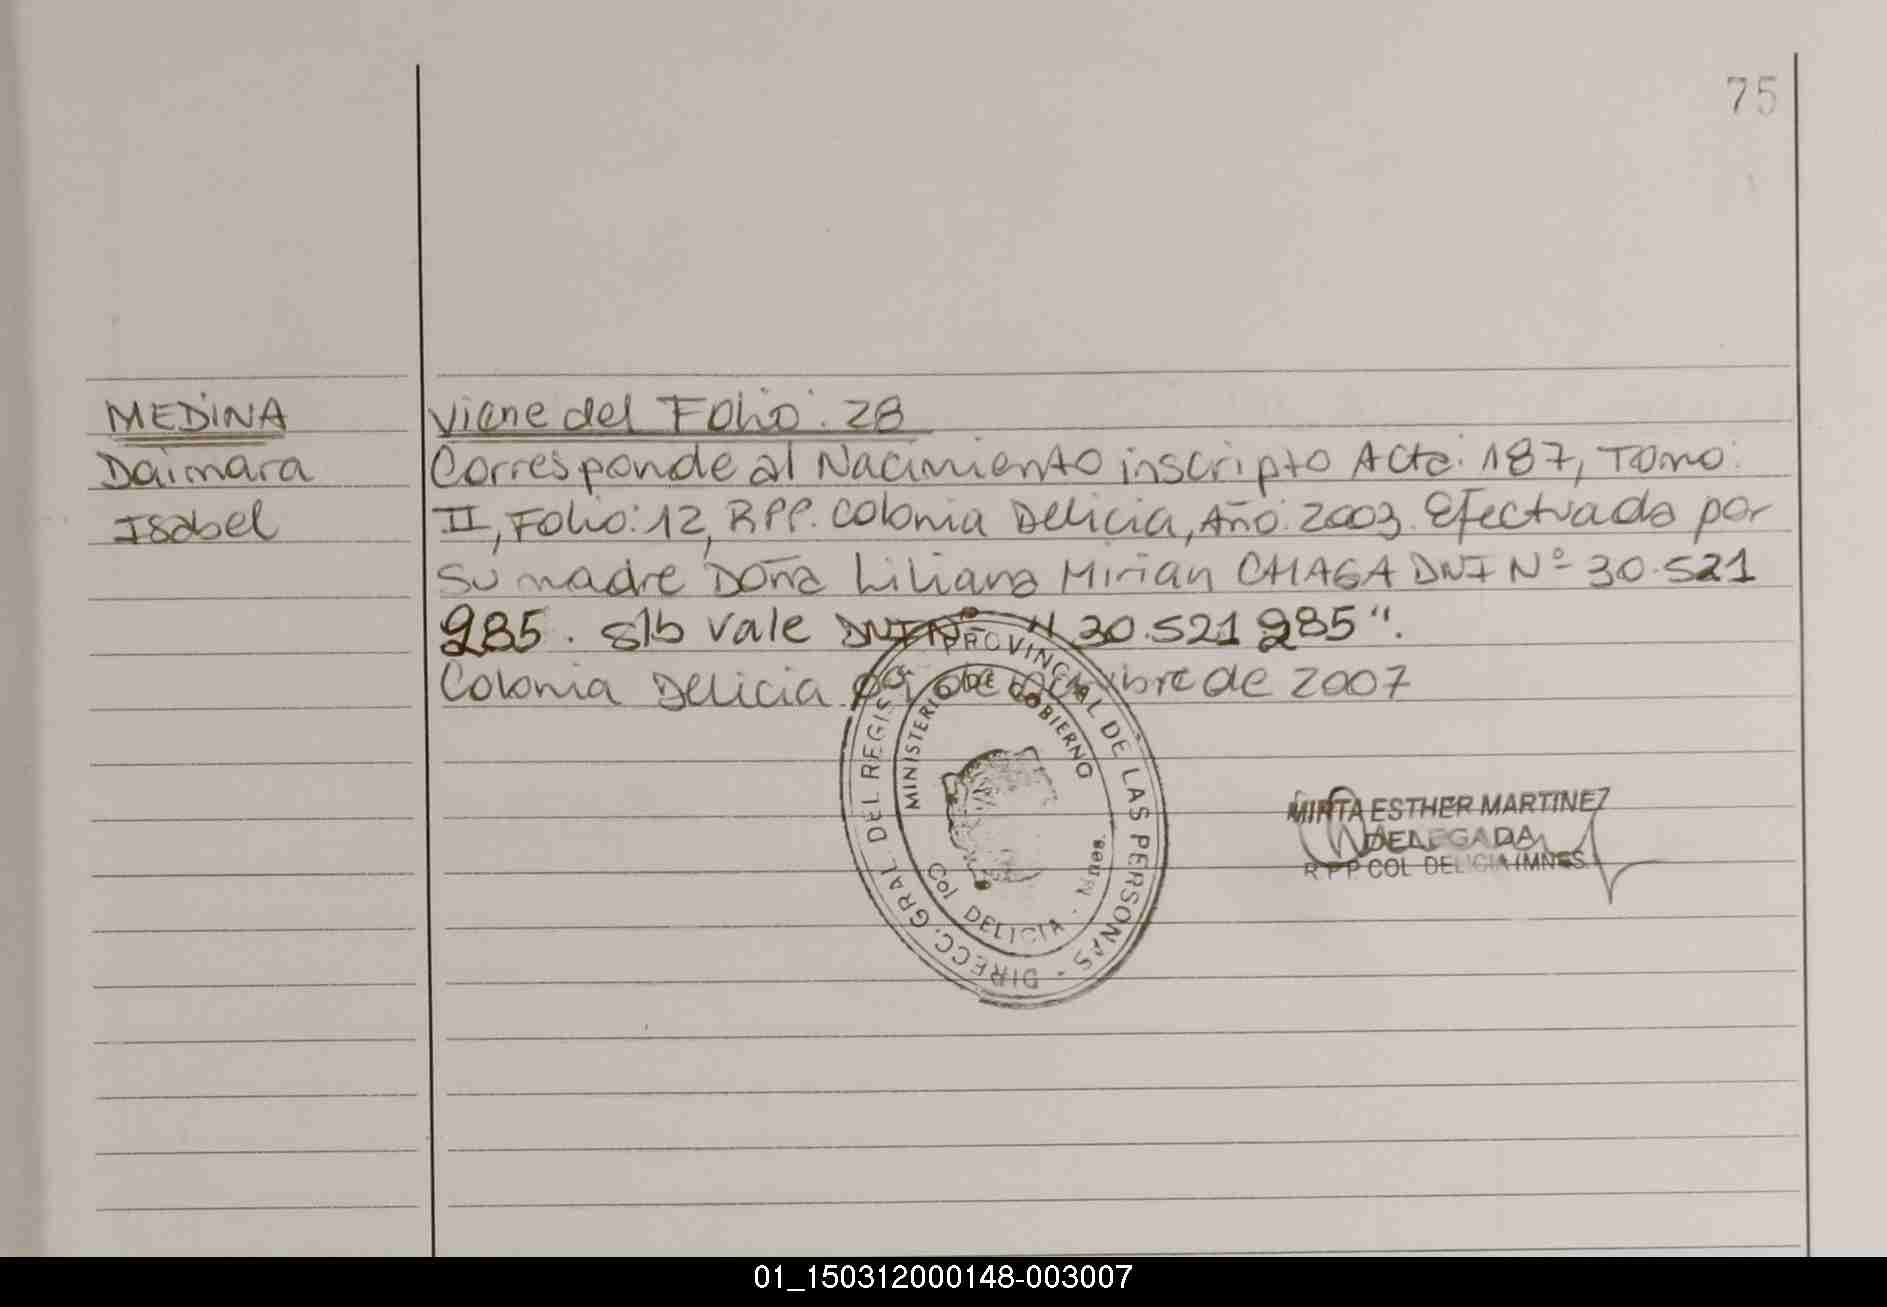 75
MEDINA
Daimara
Isabel
Viene del Folio: 28
Corresponde al Nacimiento inscripto Acta: 187, Tomo:
II, Folio: 12, RPP. Colonia Delicia, Año: 2003. Efectuado por
su madre Doña Liliana Mirian CHAGA DNI Nº 30.521
985. s/b vale DNI Nº "30.521 985".
Colonia Delicia de 2007
DIRECC. GRAL. DEL REGIS PROVINCIAL DE LAS PERSONAS -
MINISTERIO DE GOBIERNO
Col DELICIA - Mnes.
MIRTA ESTHER MARTINEZ
DELEGADA
R P P COL DELICIA (MNES.
01_150312000148-003007